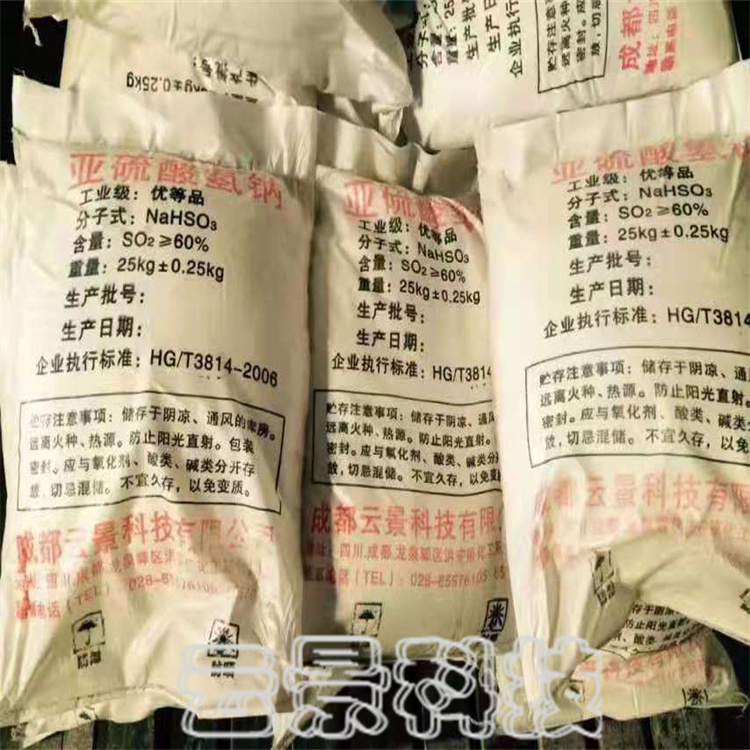 分子式:
含量:
重量: 25
生产
企业执行
贮存注意
远离火种
密封。应
放,切忌
成都
地址:四川
kg±0.25kg
生产批号:
亚硫酸氢钠
工业级:优等品
分子式:NaHSO₃
含量:SO₂≥60%
重量:25kg±0.25kg
生产批号:
生产日期:
企业执行标准:HG/T3814-2006
贮存注意事项:储存于阴凉、通风的库房。
远离火种、热源。防止阳光直射。包装
密封。应与氧化剂、酸类、碱类分开存
放,切忌混储。不宜久存,以免变质。
成都云景科技有限公司
四川,成都,龙泉驿区洪
电话(TEL):028-65976105
防潮
防晒
亚硫酸氢
工业级:优等品
分子式:NaHSO₃
含量:SO₂≥60%
重量:25kg±0.25kg
生产批号:
生产日期:
企业执行标准:HG/T3814
贮存注意事项:储存于阴凉、通风
远离火种、热源。防止阳光直射。
密封。应与氧化剂、酸类、碱类
放,切忌混储。不宜久存,以免
成都云景科技有限
地址:四川,成都,龙泉驿区洪
电话(TEL):028-65976105
亚硫酸氢
工业级:优等品
分子式:NaHSO₃
含量:SO₂≥60%
重量:25kg±0.25kg
生产批号:
生产日期:
企业执行标准:HG/T3814
贮存注意事项:储存于阴凉、通风
远离火种、热源。防止阳光直射。
密封。应与氧化剂、酸类、碱类
放,切忌混储。不宜久存,以免变
成都云景科技有限
云景科技